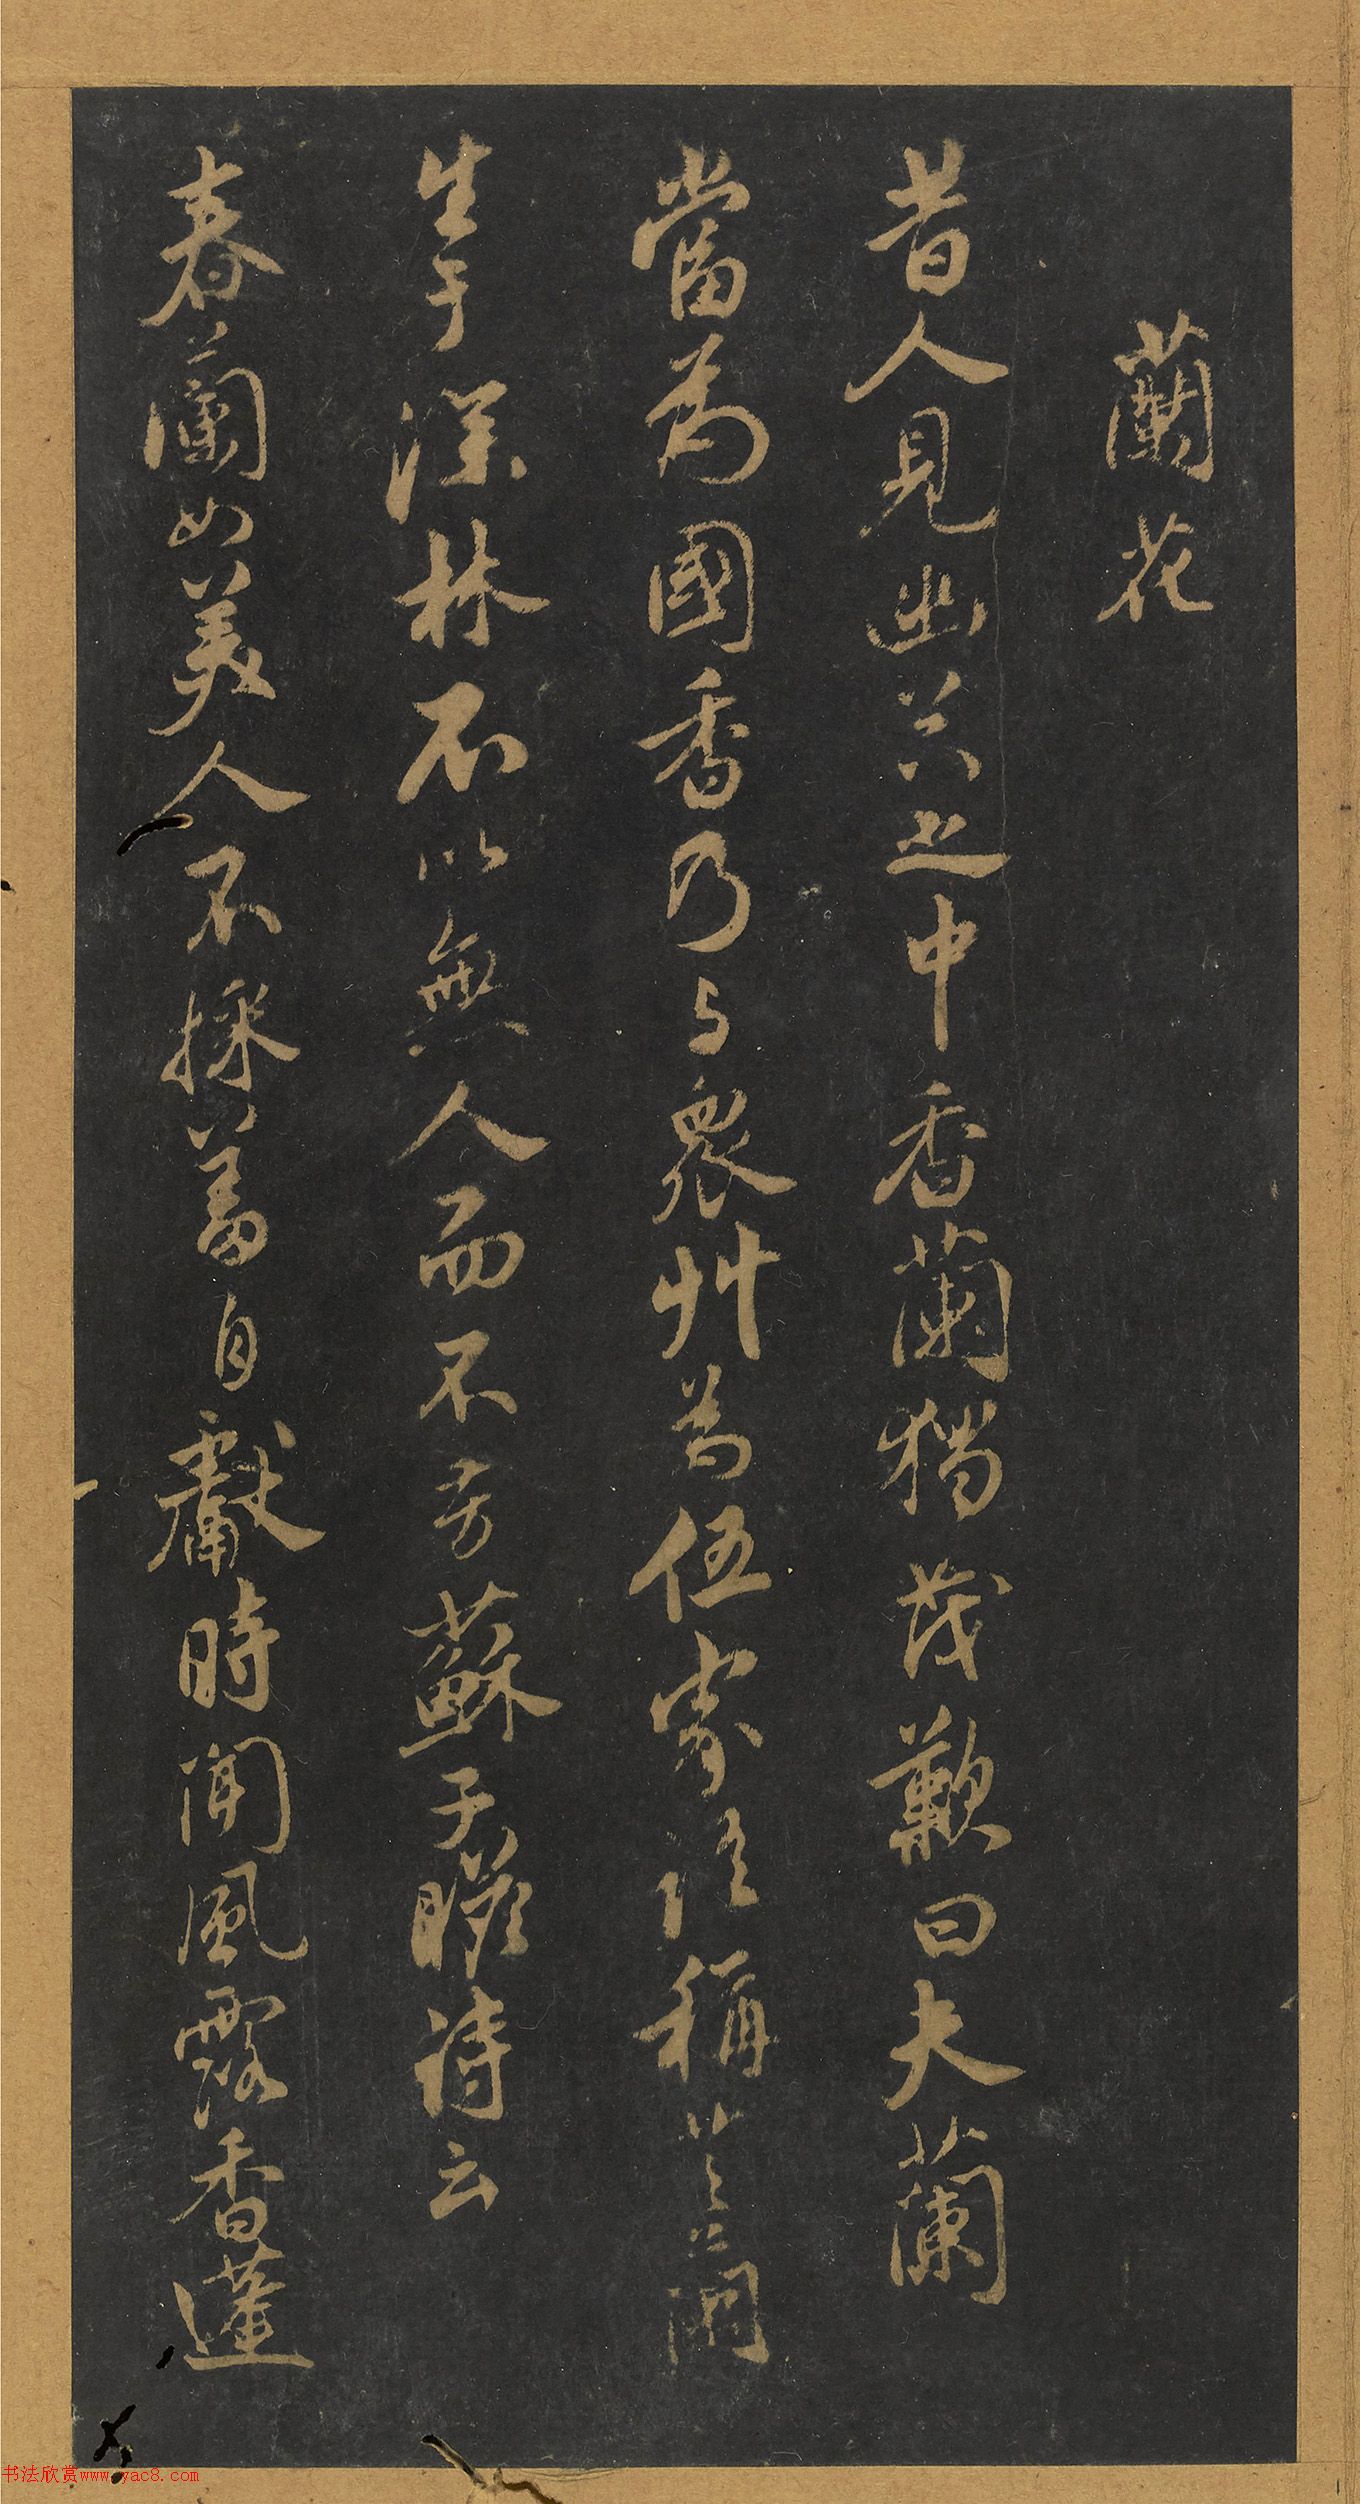 蘭花
昔人見幽谷之中香蘭獨茂歎曰夫蘭
當為國香乃与衆艸為伍家語稱芝蘭
生于深林不以無人而不芳蘇子瞻詩云
春蘭如美人不採羞自獻時聞風露香蓬
书法欣赏www.yac8.com